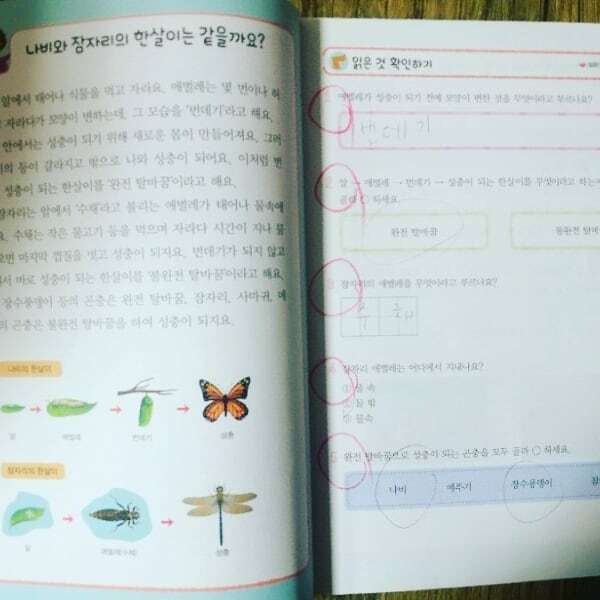 나비와 잠자리의 한살이는 같을까요?
알에서 태어나 식물을 먹고 자라요. 애벌레는 몇 번이나 허
자라다가 모양이 변하는데, 그 모습을 '번데기'라고 해요.
안에서는 성충이 되기 위해 새로운 몸이 만들어져요. 그러
의 등이 갈라지고 밖으로 나와 성충이 되어요. 이처럼 번
성충이 되는 한살이를 '완전 탈바꿈'이라고 해요.
잠자리는 알에서 '수채'라고 불리는 애벌레가 태어나 물속에
요. 수채는 작은 물고기 등을 먹으며 자라다 시간이 지나 물
마지막 껍질을 벗고 성충이 되지요. 번데기가 되지 않고
서 바로 성충이 되는 한살이를 '불완전 탈바꿈'이라고 해요.
장수풍뎅이 등의 곤충은 완전 탈바꿈, 잠자리, 사마귀, 메
의 곤충은 불완전 탈바꿈을 하여 성충이 되지요.
나비의 한살이
알 애벌레 번데기 성충
잠자리의 한살이
알 애벌레(수채) 성충
읽은 것 확인하기
애벌레가 성충이 되기 전에 모양이 변한 것을 무엇이라고 부르나요?
번데기
2 알 → 애벌레 → 번데기 → 성충이 되는 한살이를 무엇이라고 하는지
골라 ○ 하세요.
완전 탈바꿈 불완전 탈바꿈
3 잠자리의 애벌레를 무엇이라고 부르나요?
4 잠자리 애벌레는 어디에서 지내나요?
① 풀 속
② 땅 밑
③ 물속
5 완전 탈바꿈으로 성충이 되는 곤충을 모두 골라 ○ 하세요.
나비 메뚜기 장수풍뎅이 잠